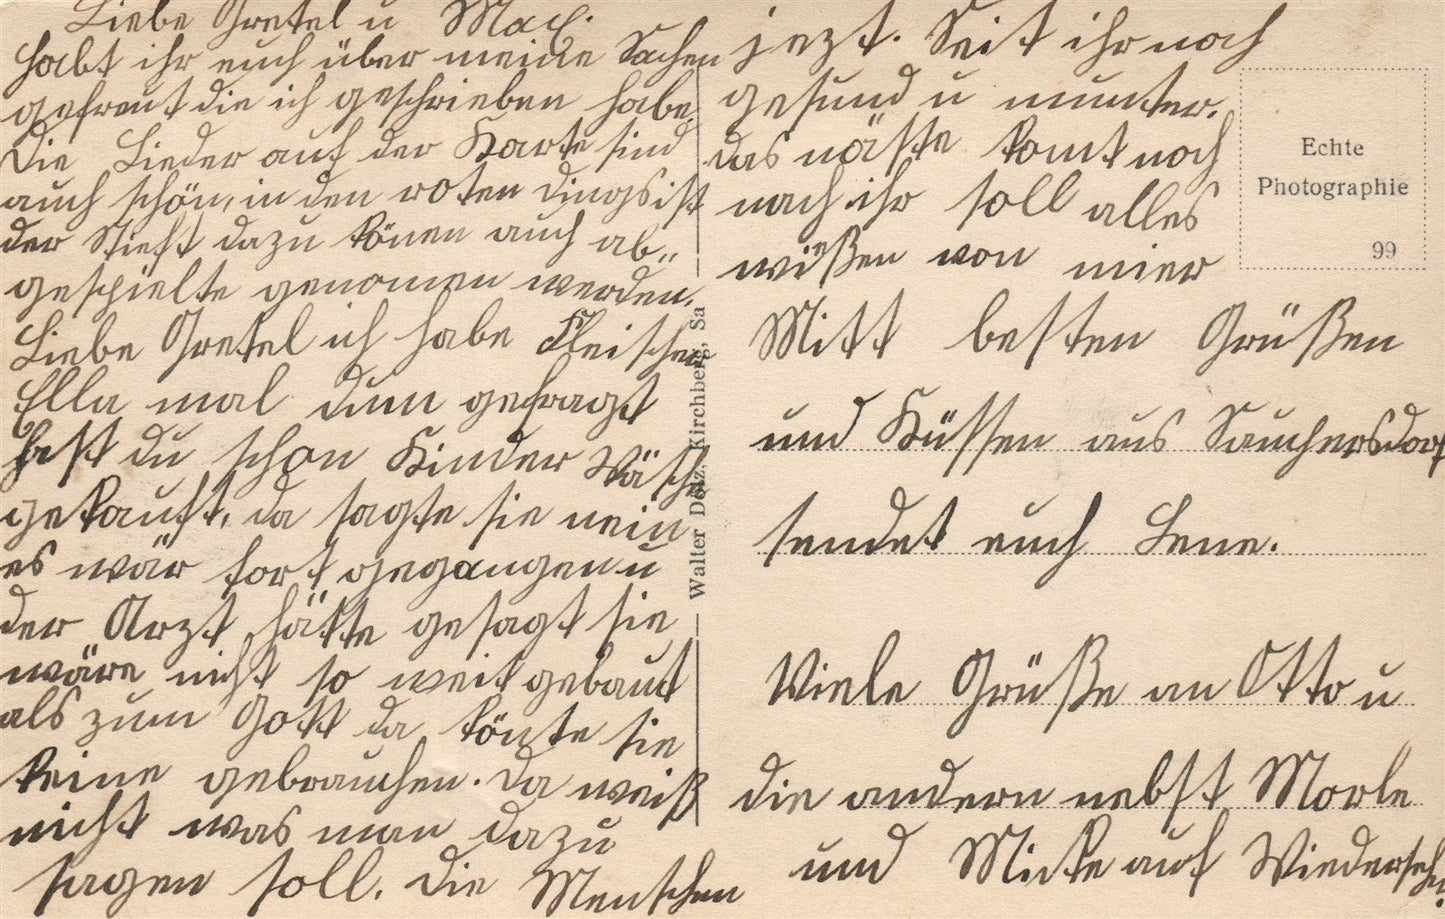 Liebe Gretel u Max.
habt ihr euch über meine Sachen
gefreut die ich geschrieben habe.
Die Lieder auf der Karte sind
auch schön, in den roten Dings ist
der Stieft dazu könen auch ab„
gespielte genomen werden.
Liebe Gretel ich habe Fleischer
Ella mal dum gefragt
hast du schon Kinder Wäsche
gekauft, da sagte sie nein
es wär fort gegangen u
der Arzt hätte gesagt sie
wäre nicht so weit gebaut
als zum Gott da könte sie
keine gebrauchen. Da weiß
nicht was man dazu
sagen soll. Die Menschen
jezt. Seit ihr noch
gesund u munter.
das näste komt noch
nach ihr soll alles
wießen von mier
Mitt besten Grüßen
und Küssen aus Sauchersdorf
sendet euch Lene.
Viele Grüße an Otto u
die andern nebst Morle
und Mieke auf Wiedersehn.
Echte
Photographie
99
Walter Dölz, Kirchberg, Sa